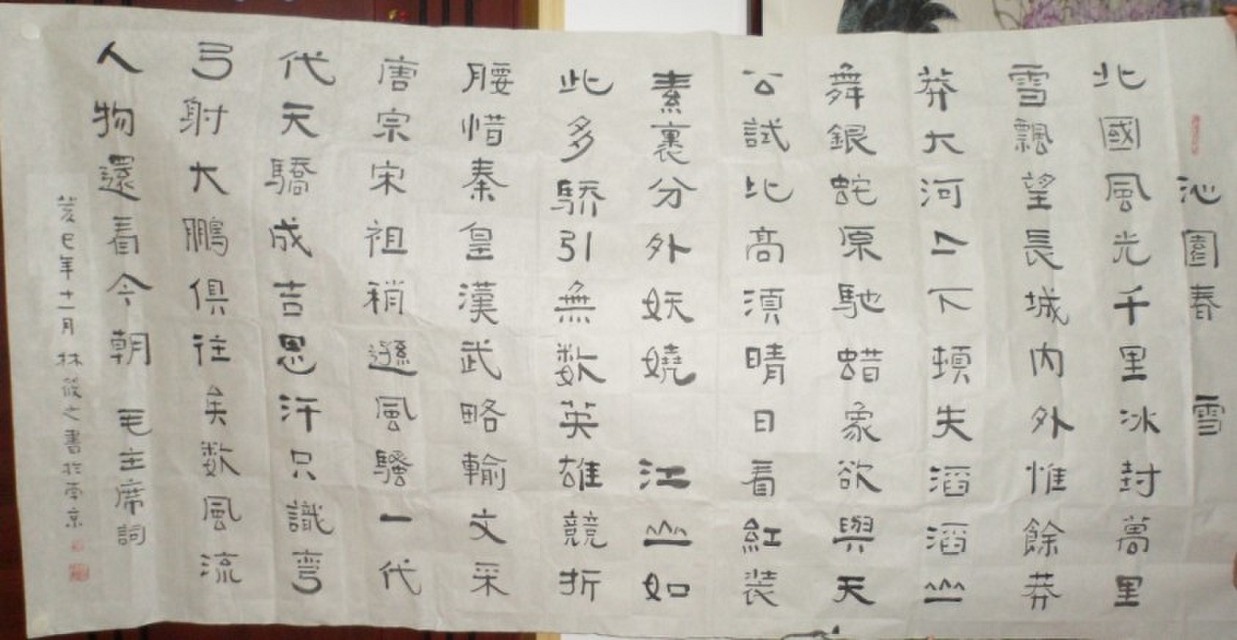 沁園春 雪
北國風光千里冰封萬里
雪飄望長城内外惟餘莽
莽大河上下頓失滔滔山
舞銀蛇原馳蜡象欲與天
公試比高須晴日看紅装
素裹分外妖嬈 江山如
此多驕引無数英雄競折
腰惜秦皇漢武略輸文采
唐宗宋祖稍遜風騷一代
代天驕成吉思汗只識弯
弓射大鵬俱往矣数風流
人物還看今朝 毛主席詞
癸巳年十一月林筱之書於南京